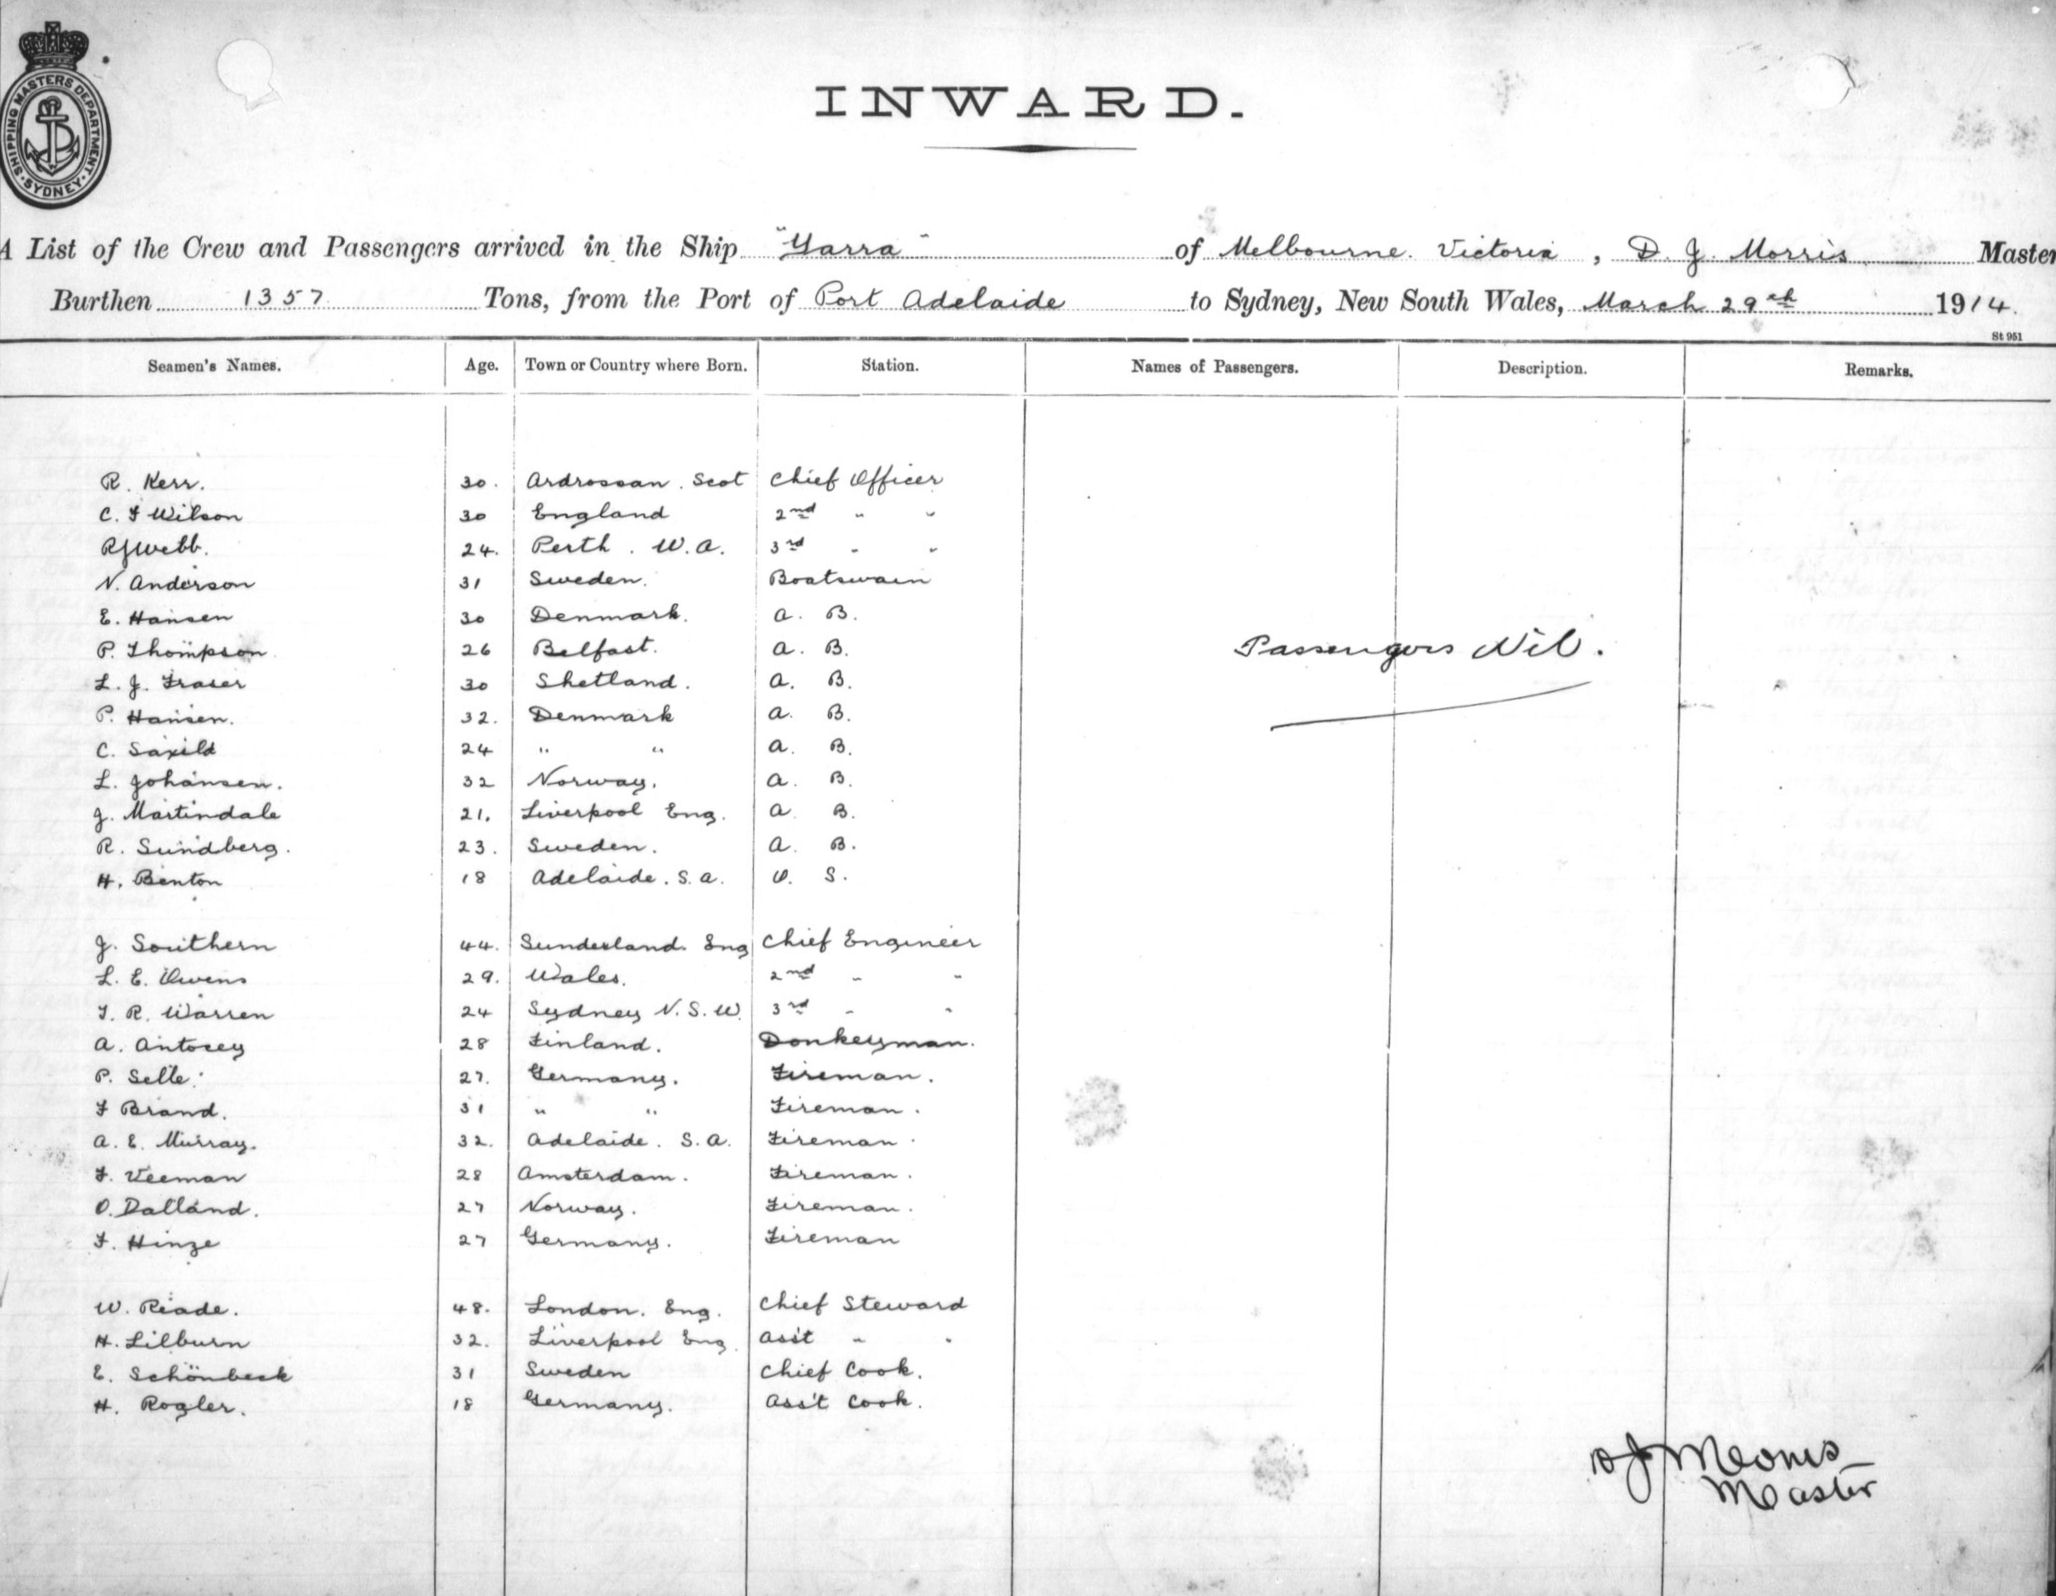 SHIPPING MASTERS DEPARTMENT · SYDNEY ·
INWARD.
A List of the Crew and Passengers arrived in the Ship "Yarra" of Melbourne. Victoria, D. J. Morris Master
Burthen 1357 Tons, from the Port of Port Adelaide to Sydney, New South Wales, March 29th 1914.
St 951
Seamen's Names. Age. Town or Country where Born. Station. Names of Passengers. Description. Remarks.
R. Kerr. 30. Ardrossan. Scot Chief Officer
C. F Wilson 30 England 2nd " "
R J Webb. 24. Perth. W.A. 3rd " "
N. Anderson 31 Sweden. Boatswain
E. Hansen 30 Denmark. A. B.
P. Thompson 26 Belfast. A. B. Passengers Nil.
L. J. Fraser 30 Shetland. A. B.
P. Hansen. 32. Denmark A. B.
C. Saxild 24 " " A. B.
L. Johansen. 32 Norway. A. B.
J. Martindale 21. Liverpool Eng. A. B.
R. Sundberg. 23. Sweden. A. B.
H. Benton 18 Adelaide. S.A. O. S.
J. Southern 44. Sunderland. Eng Chief Engineer
L. E. Owens 29. Wales. 2nd " "
T. R. Warren 24 Sydney N.S.W. 3rd " "
A. Antocey 28 Finland. Donkeyman.
P. Selle. 27. Germany. Fireman.
F Brand. 31 " " Fireman.
A. E. Murray. 32. Adelaide. S.A. Fireman.
F. Veeman 28 Amsterdam. Fireman.
O. Dalland. 27 Norway. Fireman.
F. Hinze 27 Germany. Fireman
W. Reade. 48. London. Eng. Chief Steward
H. Lilburn 32. Liverpool Eng. Ass't " "
E. Schönbeck 31 Sweden Chief Cook.
H. Rogler. 18 Germany. Ass't Cook.
D J Morris
Master